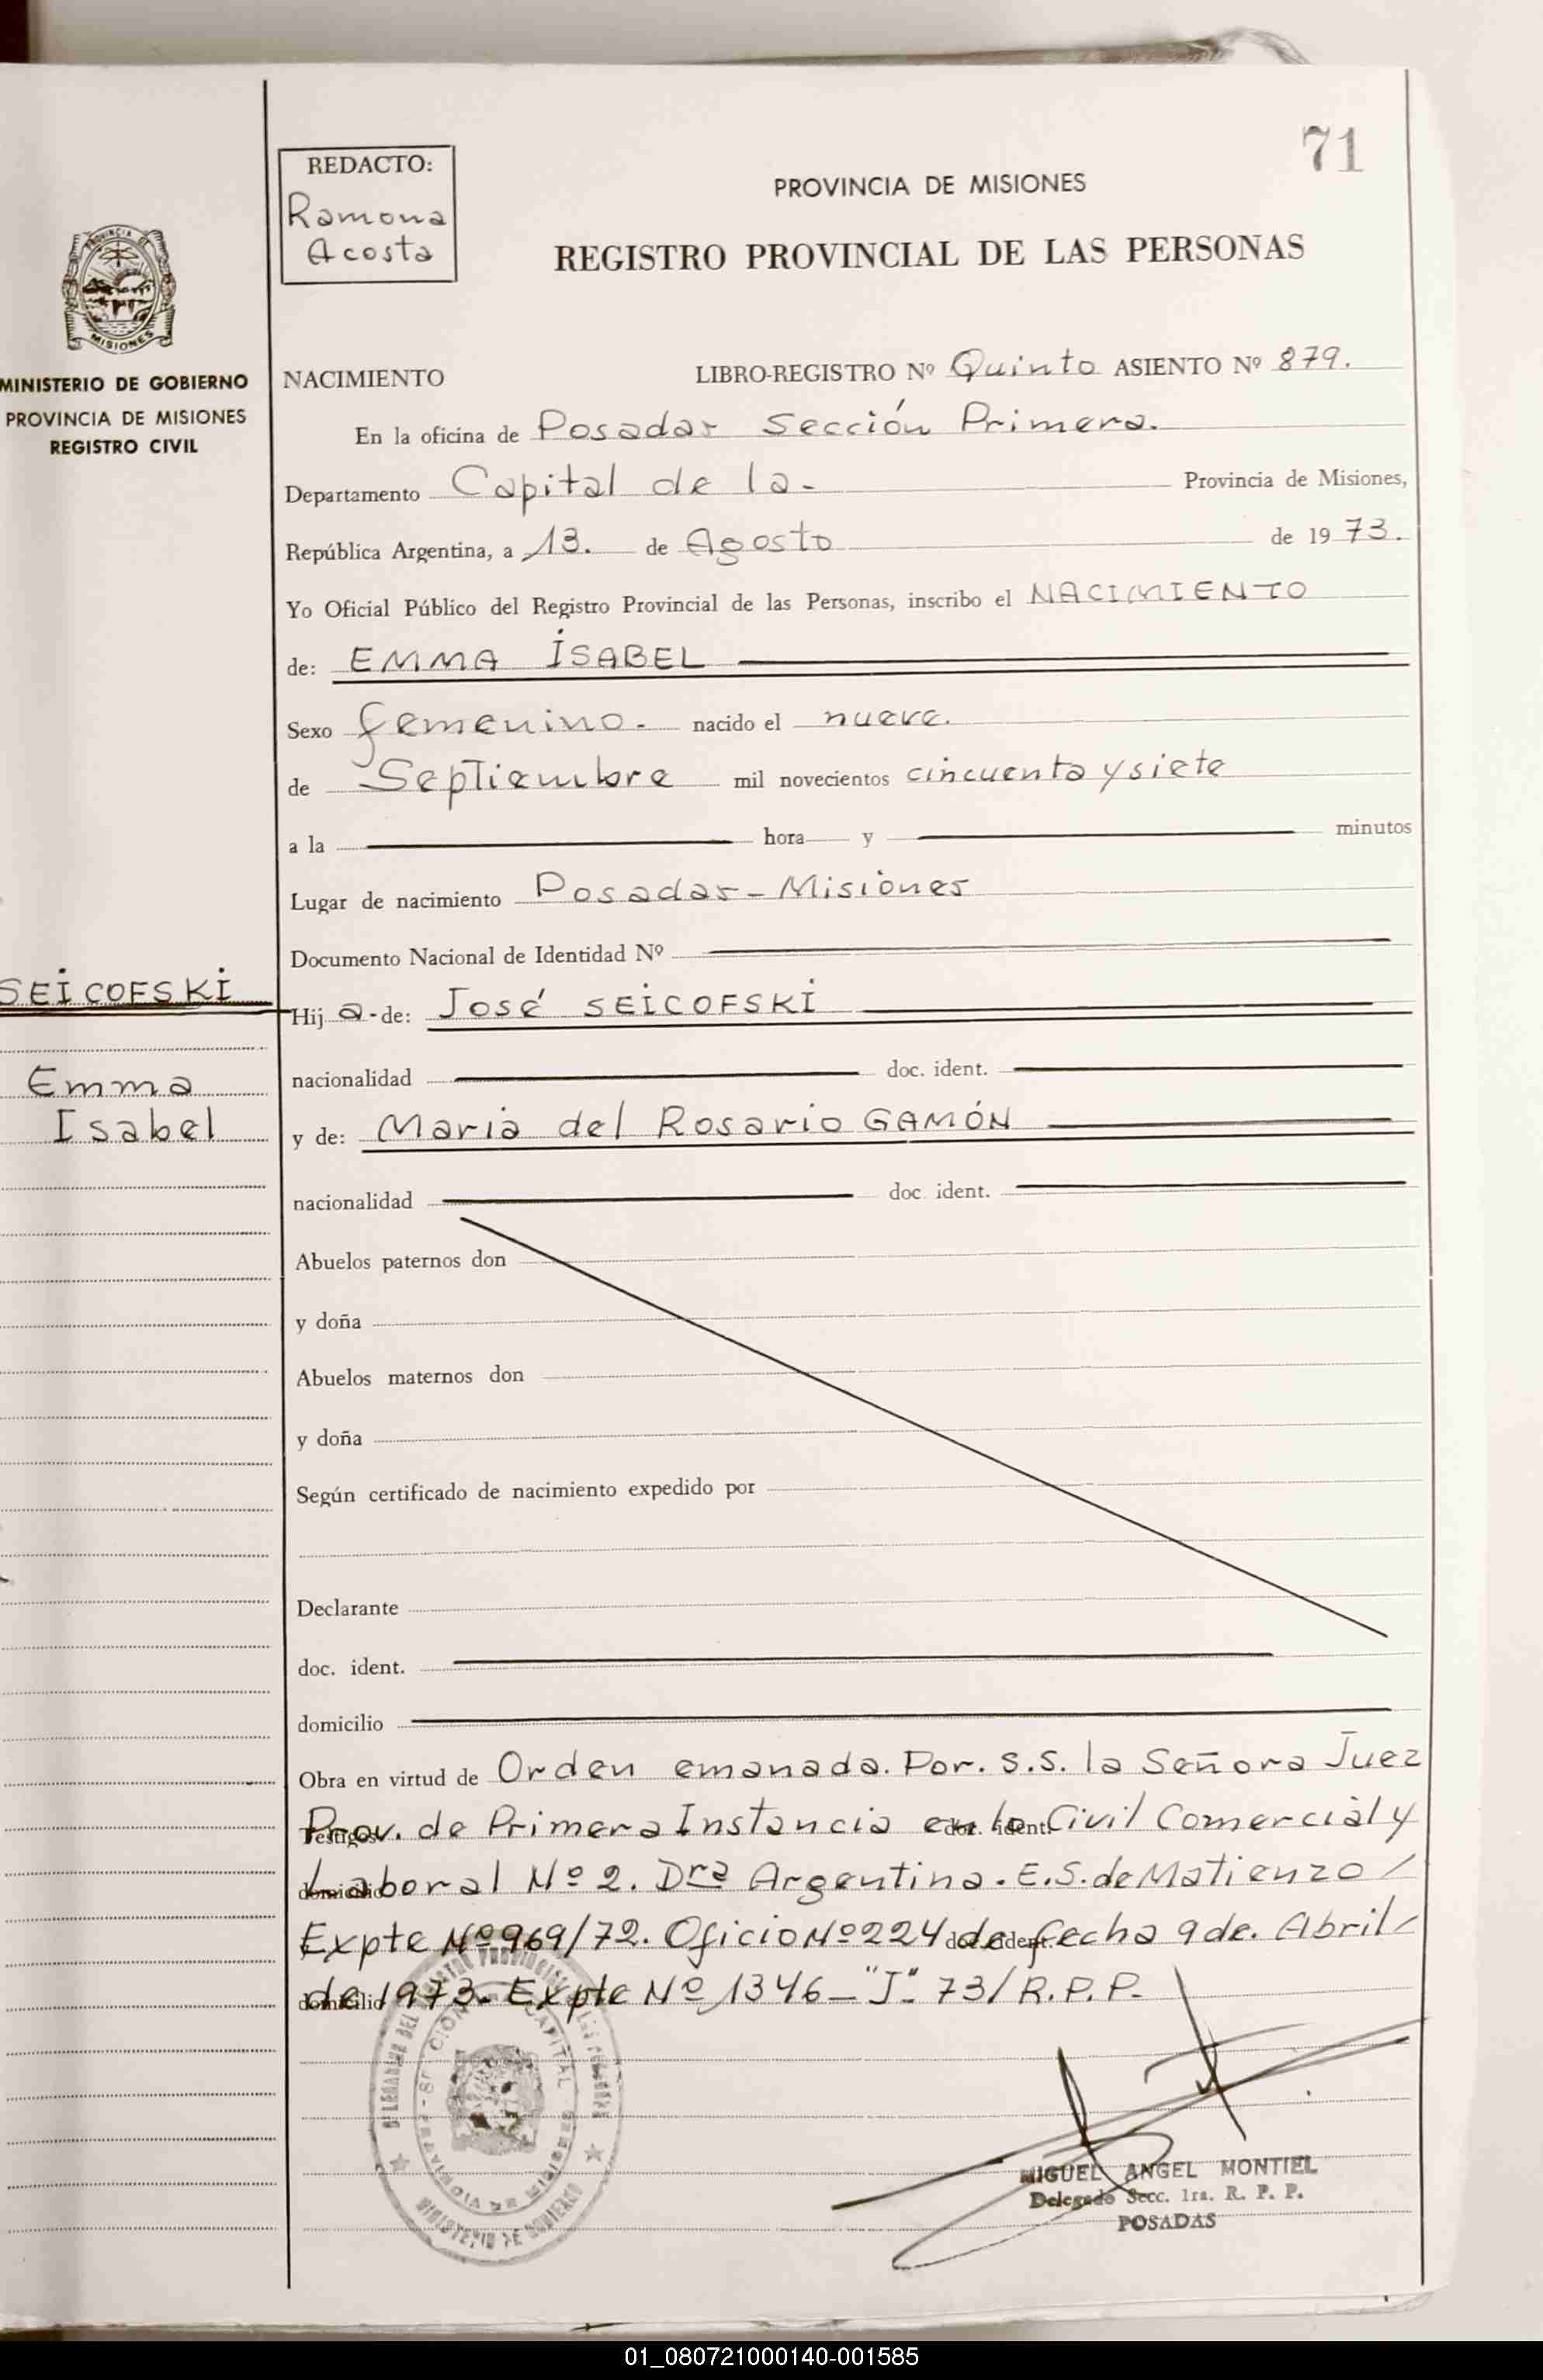 71
REDACTO:
Ramona
Acosta
PROVINCIA DE MISIONES
REGISTRO PROVINCIAL DE LAS PERSONAS
MISIONES
MINISTERIO DE GOBIERNO
PROVINCIA DE MISIONES
REGISTRO CIVIL
NACIMIENTO LIBRO-REGISTRO Nº Quinto ASIENTO Nº 879.
En la oficina de Posadas Sección Primera.
Departamento Capital de la - Provincia de Misiones,
República Argentina, a 13. de Agosto de 1973.
Yo Oficial Público del Registro Provincial de las Personas, inscribo el NACIMIENTO
de: EMMA ISABEL
Sexo femenino - nacido el nueve.
de Septiembre mil novecientos cincuenta y siete
a la hora y minutos
Lugar de nacimiento Posadas - Misiones
Documento Nacional de Identidad Nº
SEICOFSKI
Emma
Isabel
Hij a - de: José SEICOFSKI
nacionalidad doc. ident.
y de: Maria del Rosario GAMÓN
nacionalidad doc. ident.
Abuelos paternos don
y doña
Abuelos maternos don
y doña
Según certificado de nacimiento expedido por
Declarante
doc. ident.
domicilio
Obra en virtud de Orden emanada. Por. S.S. la Señora Juez
Prov. de Primera Instancia en lo Civil Comercial y
Laboral Nº 2. Dra Argentina. E.S. de Matienzo /
Expte Nº 969/72. Oficio Nº 224 de fecha 9 de. Abril
de 1973. Expte Nº 1346 - "J" 73/R.P.P.
MINISTERIO DE GOBIERNO
MIGUEL ANGEL MONTIEL
Delegado Secc. 1ra. R. P. P.
POSADAS
01_080721000140-001585